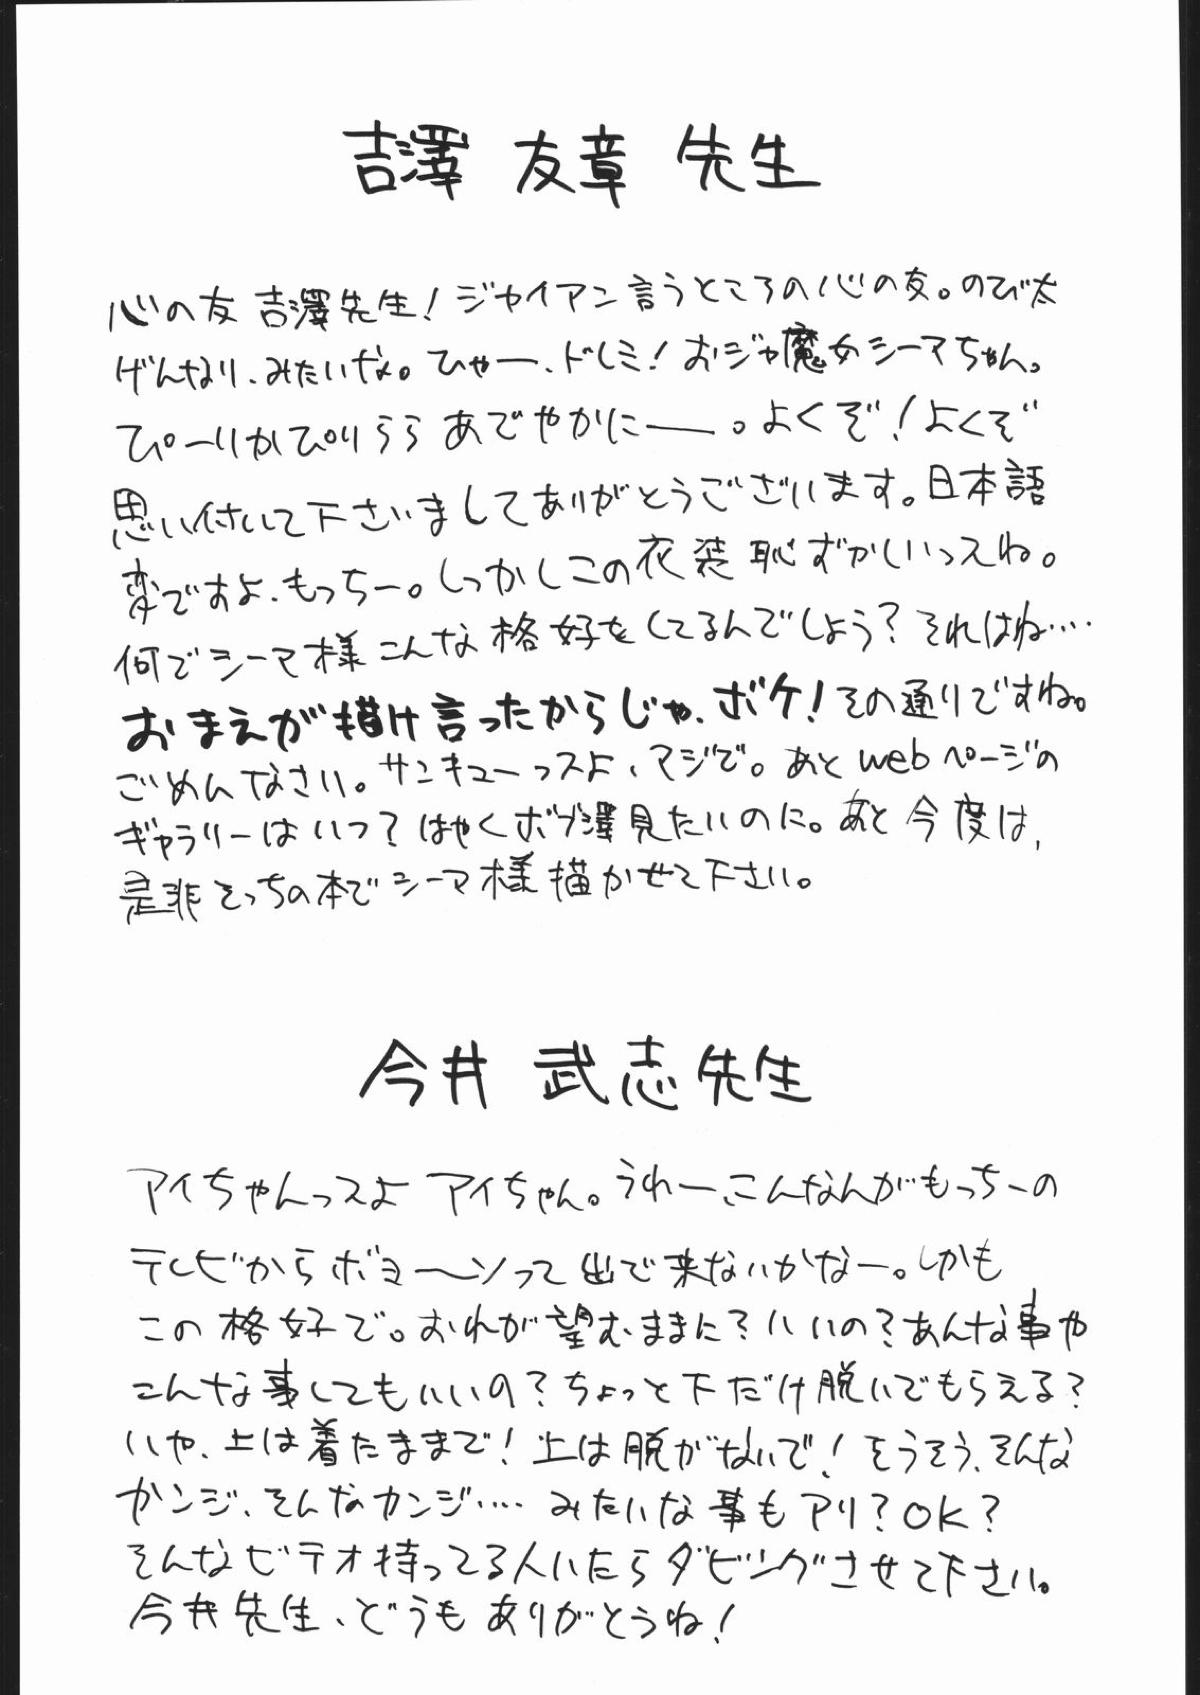 吉澤 友章 先生
心の友 吉澤先生！ジャイアン言うところの心の友。のび太
げんなり、みたいな。ひゃー、ドレミ！おジャ魔女シーマちゃん。
ぴーりかぴりらら あでやかにー。よくぞ！よくぞ
思い付いて下さいましてありがとうございます。日本語
変ですよ、もっちー。しっかしこの衣装恥ずかしいっスね。
何でシーマ様こんな格好をしてるんでしょう？それはね…
おまえが描け言ったからじゃ、ボケ！その通りですね。
ごめんなさい。サンキューっスよ、マジで。あとwebページの
ギャラリーはいつ？はやくボブ澤見たいのに。あと今度は、
是非そっちの本でシーマ様描かせて下さい。
今井 武志先生
アイちゃんっスよ アイちゃん。うれー、こんなんがもっちーの
テレビからボヨ〜ンって出で来ないかなー。しかも
この格好で。おれが望むままに？いいの？あんな事や
こんな事してもいいの？ちょっと下だけ脱いでもらえる？
いや、上は着たままで！上は脱がないで！そうそう、そんな
カンジ、そんなカンジ…みたいな事もアリ？OK？
そんなビデオ持ってる人いたらダビングさせて下さい。
今井先生、どうもありがとうね！